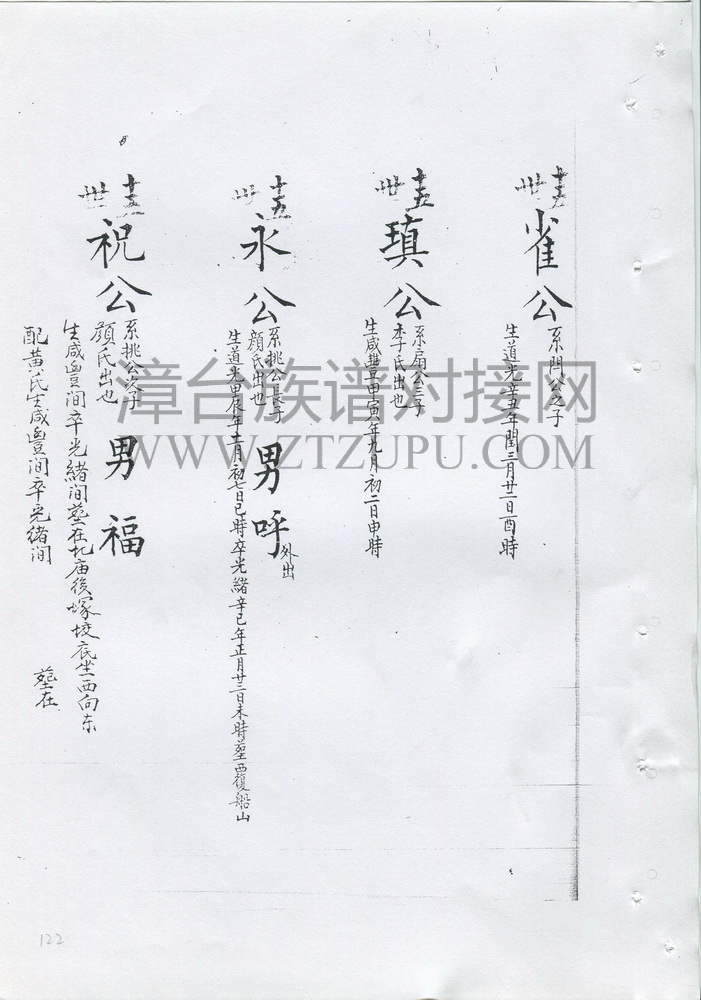 十五世
雀公
系門公之子
生道光辛丑年閏三月廿二日酉時
十五世
瑱公
系扇公三子
李氏出也
生咸豐甲寅年九月初二日申時
十五世
永公
系挑公長子
顏氏出也
男呼
外出
生道光甲辰年十二月初七日巳時卒光緒辛巳年正月廿三日未時墓西覆船山
十五世
祝公
系挑公次子
顏氏出也
男福
生咸豐間卒光緒間墓在北庙後塚坟底坐西向东
配黄氏生咸豐間卒光緒間
墓在
漳台族谱对接网
WWW.ZTZUPU.COM
122